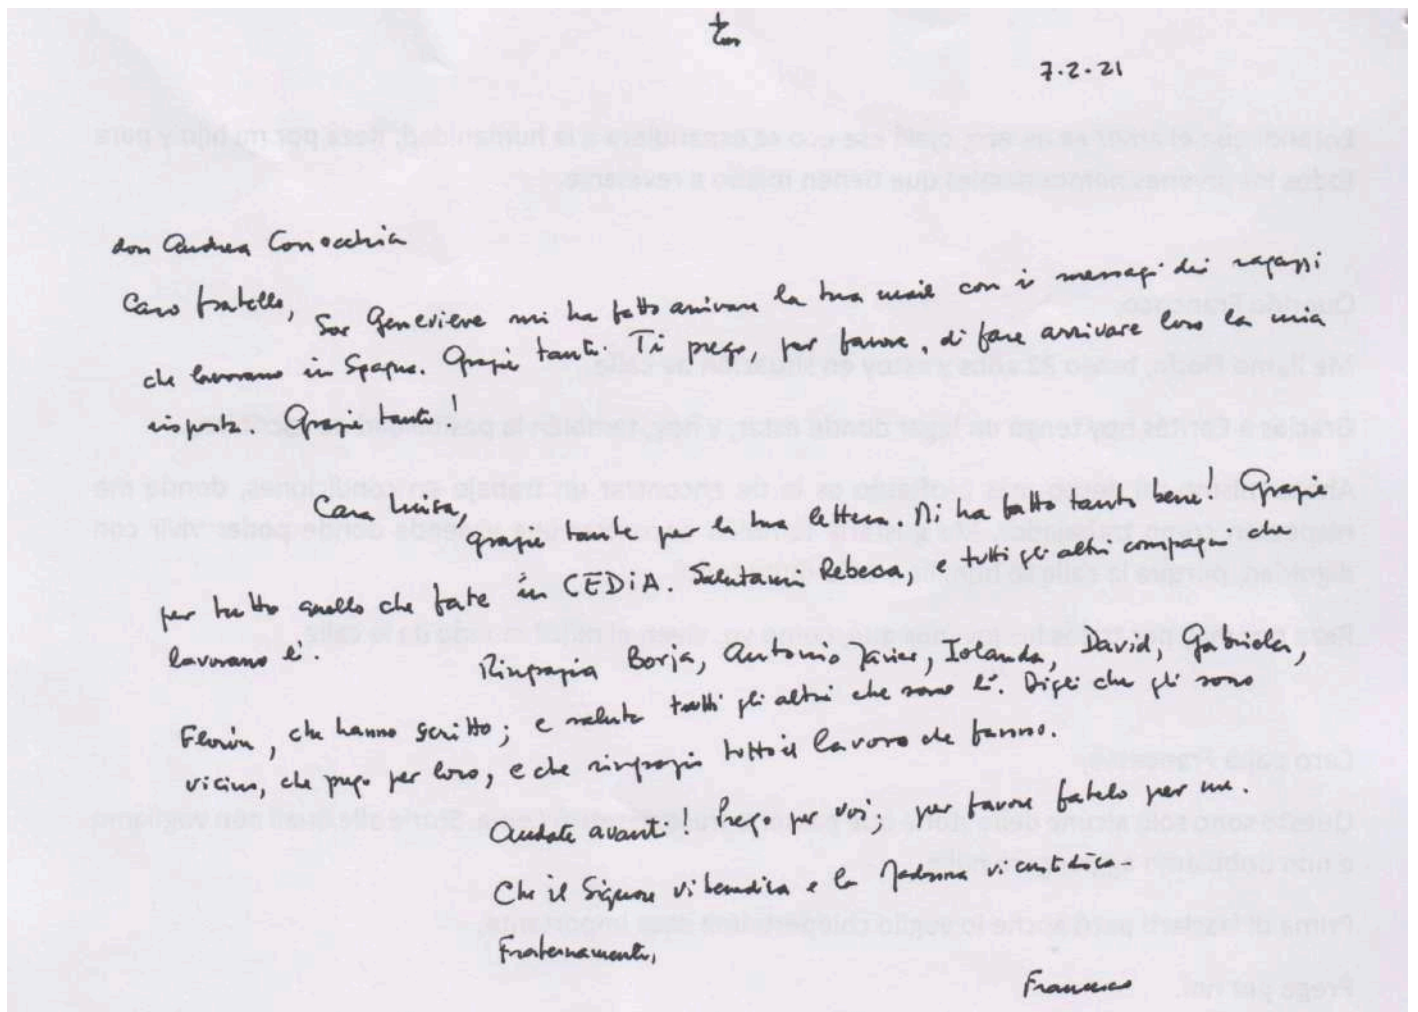 7-2-21
don Andrea Conocchia
Caro fratello,
Sor Geneviève mi ha fatto arrivare la tua mail con i messagi dei ragazzi
che lavorano in Spagna. Grazie tante. Ti prego, per favore, di fare arrivare loro la mia
risposta. Grazie tante!
Cara Luisa,
grazie tante per la tua lettera. Mi ha fatto tanto bene! Grazie
per tutto quello che fate in CEDIA. Salutami Rebeca, e tutti gli altri compagni che
lavorano lì.
Ringrazia Borja, Antonio Javier, Iolanda, David, Gabriela,
Florin, che hanno scritto; e saluta tutti gli altri che sono lì. Digli che gli sono
vicino, che prego per loro, e che ringrazio tutto il lavoro che fanno.
Andate avanti. Prego per voi; per favore fatelo per me.
Che il Signore vi benedica e la Madonna vi custodisca.
Fraternamente,
Francesco